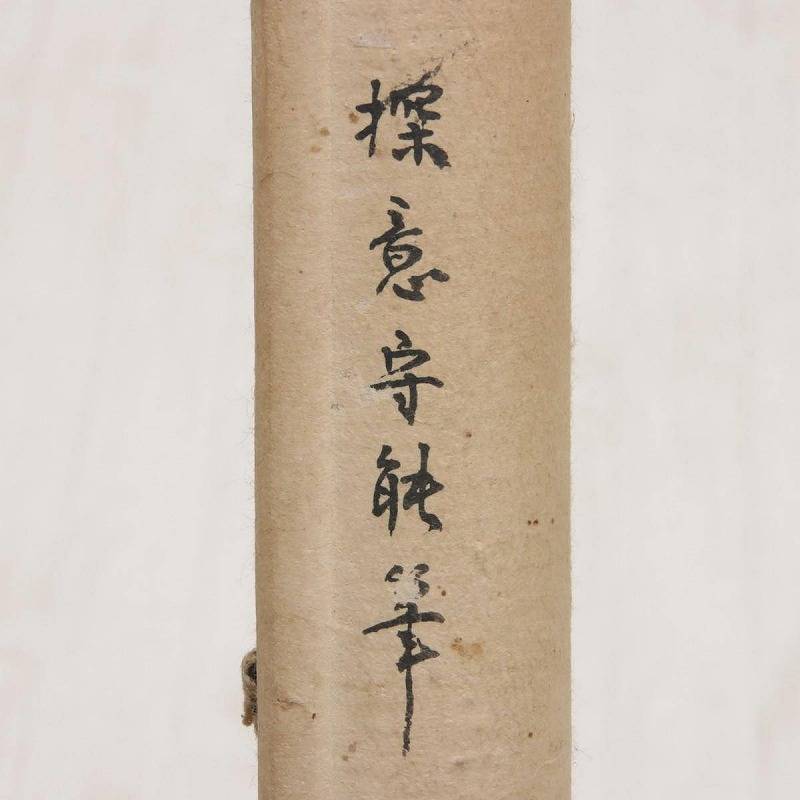 探意守能筆